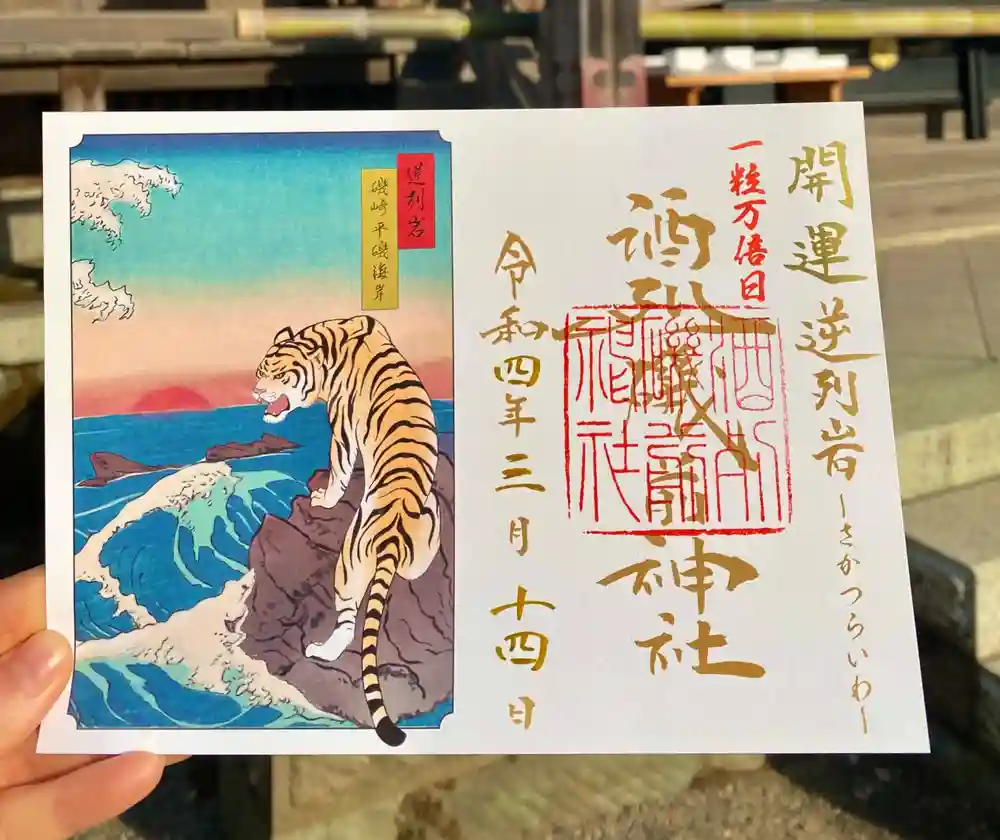 開運 逆列岩 ーさかつらいわー
一粒万倍日
酒列磯前神社
酒列
磯前
神社
令和四年三月十四日
逆列岩
磯崎平磯海岸